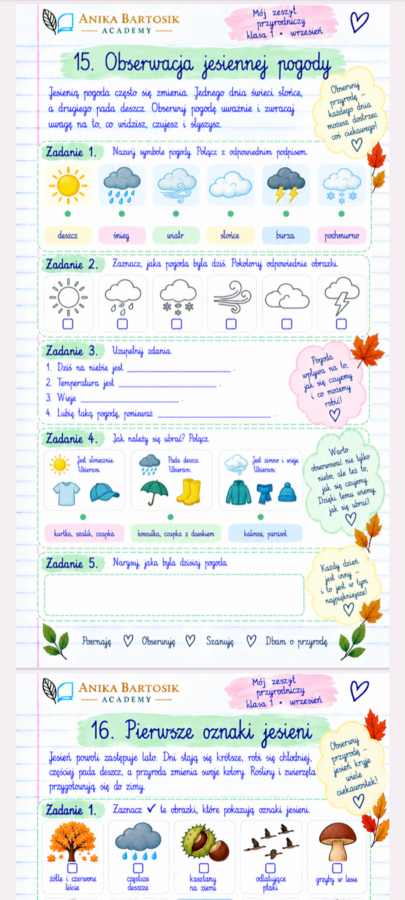 ANIKA BARTOSIK
ACADEMY
Mój zeszyt
przyrodniczy
klasa 1 • wrzesień
15. Obserwacja jesiennej pogody
Jesienią pogoda często się zmienia. Jednego dnia świeci słońce,
a drugiego pada deszcz. Obserwuj pogodę uważnie i zwracaj
uwagę na to, co widzisz, czujesz i słyszysz.
Obserwuj
przyrodę –
każdego dnia
możesz dostrzec
coś ciekawego!
Zadanie 1. Nazwij symbole pogody. Połącz z odpowiednim podpisem.
deszcz śnieg wiatr słońce burza pochmurno
Zadanie 2. Zaznacz, jaka pogoda była dziś. Pokoloruj odpowiednie obrazki.
Zadanie 3. Uzupełnij zdania.
1. Dziś na niebie jest ____________ .
2. Temperatura jest ____________ .
3. Wieje ____________ .
4. Lubię taką pogodę, ponieważ ____________ .
Pogoda
wpływa na to,
jak się czujemy
i co możemy
robić!
Zadanie 4. Jak należy się ubrać? Połącz.
Jest słonecznie.
Ubieram:
Pada deszcz.
Ubieram:
Jest zimno i wieje.
Ubieram:
kurtka, szalik, czapka
koszulka, czapka z daszkiem
kalosze, parasol
Warto
obserwować nie tylko
niebo, ale też to,
jak się czujemy.
Dzięki temu wiemy,
jak się ubrać!
Zadanie 5. Narysuj, jaka była dzisiaj pogoda.
Każdy dzień
jest inny –
i to jest w tym
najpiękniejsze!
Poznaję Obserwuję Szanuję Dbam o przyrodę
ANIKA BARTOSIK
ACADEMY
Mój zeszyt
przyrodniczy
klasa 1 • wrzesień
16. Pierwsze oznaki jesieni
Jesień powoli zastępuje lato. Dni stają się krótsze, robi się chłodniej,
częściej pada deszcz, a przyroda zmienia swoje kolory. Rośliny i zwierzęta
przygotowują się do zimy.
Obserwuj
przyrodę –
jesień kryje
wiele
ciekawostek!
Zadanie 1. Zaznacz ✓ te obrazki, które pokazują oznaki jesieni.
żółte i czerwone
liście
częstsze
deszcze
kasztany
na ziemi
odlatujące
ptaki
grzyby w lesie